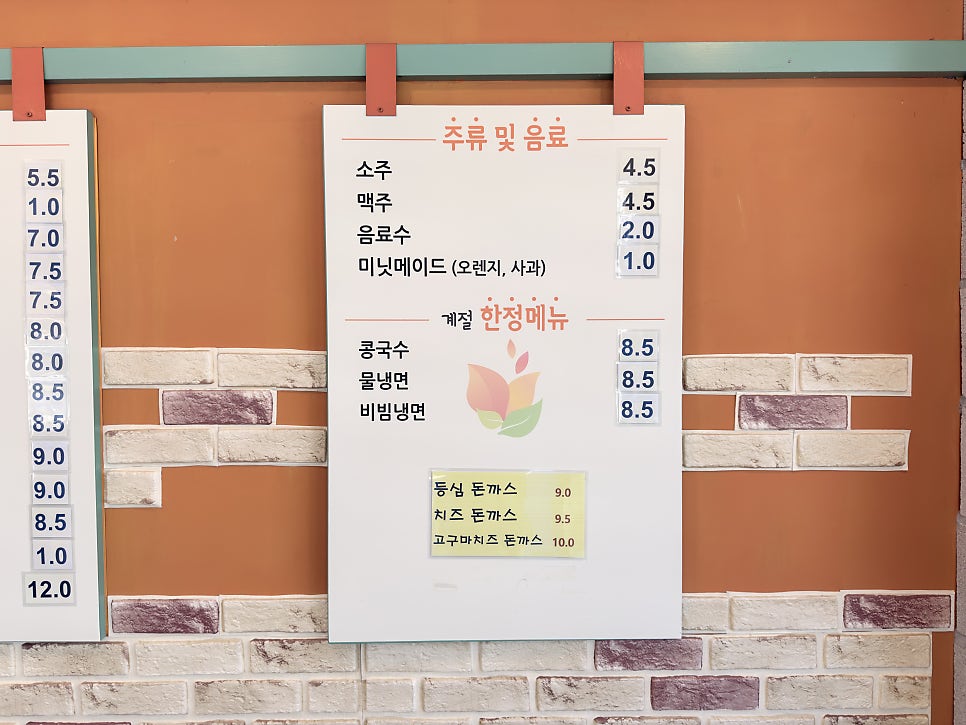 5.5
1.0
7.0
7.5
7.5
8.0
8.0
8.5
8.5
9.0
9.0
8.5
1.0
12.0
주류 및 음료
소주 4.5
맥주 4.5
음료수 2.0
미닛메이드 (오렌지, 사과) 1.0
계절 한정메뉴
콩국수 8.5
물냉면 8.5
비빔냉면 8.5
등심 돈까스 9.0
치즈 돈까스 9.5
고구마치즈 돈까스 10.0